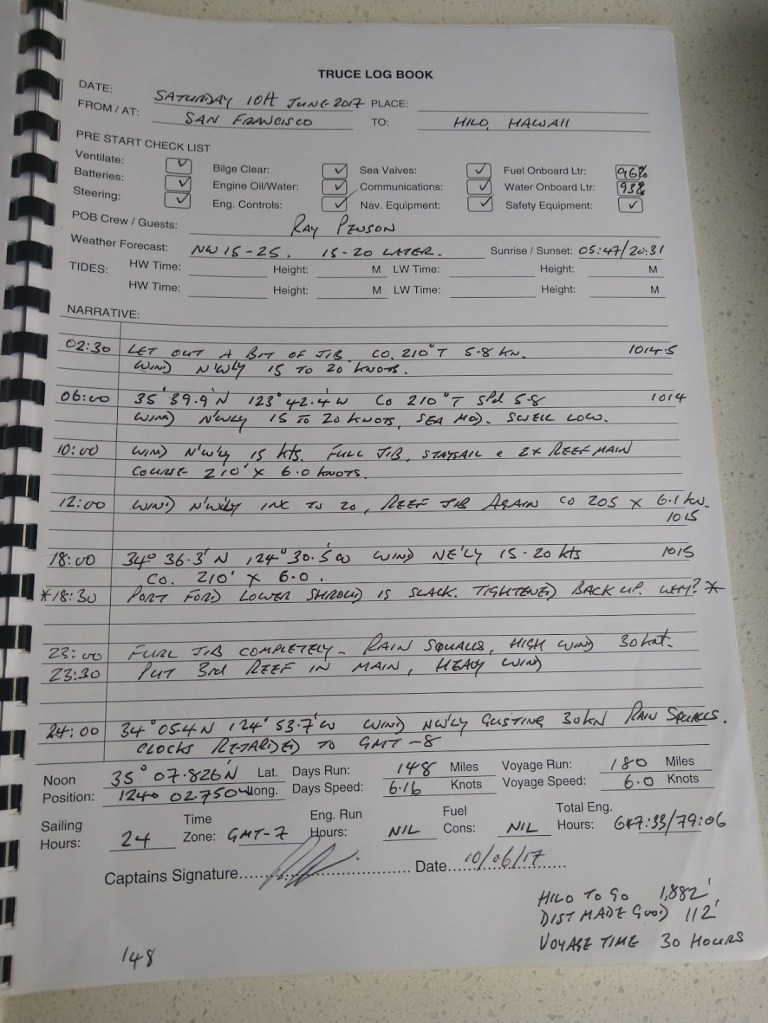 TRUCE LOG BOOK
DATE: SATURDAY 10TH JUNE 2017 PLACE:
FROM / AT: SAN FRANCISCO TO: HILO, HAWAII
PRE START CHECK LIST
Ventilate: ✓ Bilge Clear: ✓ Sea Valves: ✓ Fuel Onboard Ltr: 96%
Batteries: ✓ Engine Oil/Water: ✓ Communications: ✓ Water Onboard Ltr: 93%
Steering: ✓ Eng. Controls: ✓ Nav. Equipment: ✓ Safety Equipment: ✓
POB Crew / Guests: RAY PENSON
Weather Forecast: NW 15-25. 15-20 LATER. Sunrise / Sunset: 05:47/20:31
TIDES: HW Time: Height: M LW Time: Height: M
HW Time: Height: M LW Time: Height: M
NARRATIVE:
02:30 LET OUT A BIT OF JIB. CO. 210°T 5.8 KN. 1014.5
WIND N'WLY 15 TO 20 KNOTS.
06:00 35°39.9'N 123°42.4'W CO 210°T SPd 5.8 1014
WIND N'WLY 15 TO 20 KNOTS, SEA MOD. SWELL LOW.
10:00 WIND N'WLY 15 kts. FULL JIB, STAYSAIL & 2x REEF MAIN
COURSE 210° X 6.0 KNOTS.
12:00 WIND N'WLY INC TO 20, REEF JIB AGAIN CO 205 X 6.1 kn.
1015
18:00 34° 36.3'N 124°30.5'W WIND NE'LY 15-20 kts 1015
CO. 210° X 6.0.
*18:30 PORT FORD LOWER SHROUD IS SLACK. TIGHTENED BACK UP. WHY? *
23:00 FURL JIB COMPLETELY - RAIN SQUALLS, HIGH WIND 30knt.
23:30 PUT 3rd REEF IN MAIN, HEAVY WIND
24:00 34°05.4N 124°53.7'W WIND NW'LY GUSTING 30KN RAIN SQUALLS.
CLOCKS RETARDED TO GMT -8
Noon 35° 07.826'N Lat. Days Run: 148 Miles Voyage Run: 180 Miles
Position: 124° 02.750W Long. Days Speed: 6.16 Knots Voyage Speed: 6.0 Knots
Sailing Hours: 24 Time Zone: GMT-7 Eng. Run Hours: NIL Fuel Cons: NIL Total Eng. Hours: 647:33/79:06
Captains Signature Date 10/06/17
HILO TO GO 1,882'
DIST MADE GOOD 112'
VOYAGE TIME 30 HOURS
148